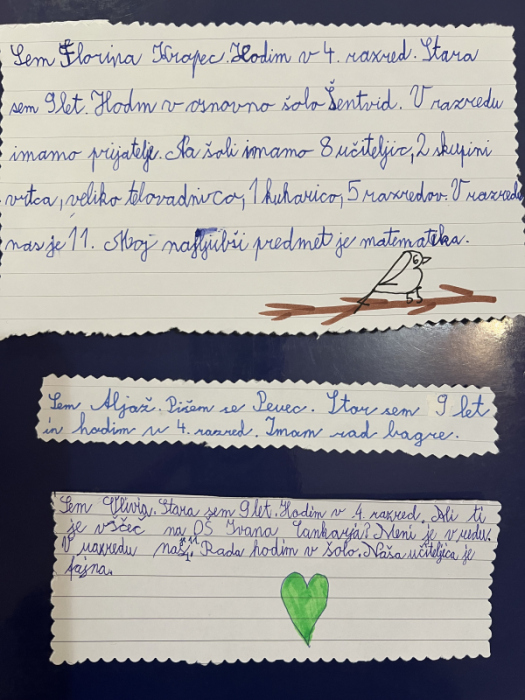 Sem Florina Krapec. Hodim v 4. razred. Stara
sem 9 let. Hodm v osnovno šolo Šentvid. V razredu
imamo prijatelje. Na šoli imamo 8 učiteljic, 2 skupini
vrtca, veliko telovadnico, 1 kuharico, 5 razredov. V razredu
nas je 11. Moj najljubši predmet je matematika.
Sem Aljaž. Pišem se Pevec. Star sem 9 let
in hodim v 4. razred. Imam rad bagre.
Sem Stara sem 9 let. Hodim v 4. razred. Ali ti
je všeč na OŠ Ivana Cankarja? Meni je v redu.
V razredu nas je 11. Rada hodim v šolo. Naša učiteljica je
fajna.